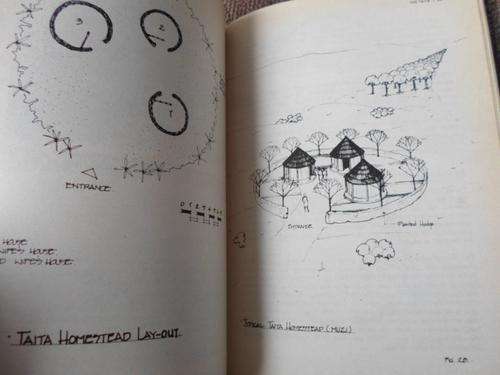 3
2
1
ENTRANCE
HOUSE
WIFE'S HOUSE.
WIFE'S HOUSE.
TAITA HOMESTEAD LAY-OUT.
ENTRANCE
Planted Hedge
TYPICAL TAITA HOMESTEAD (MUZI)
FIG. 2B.